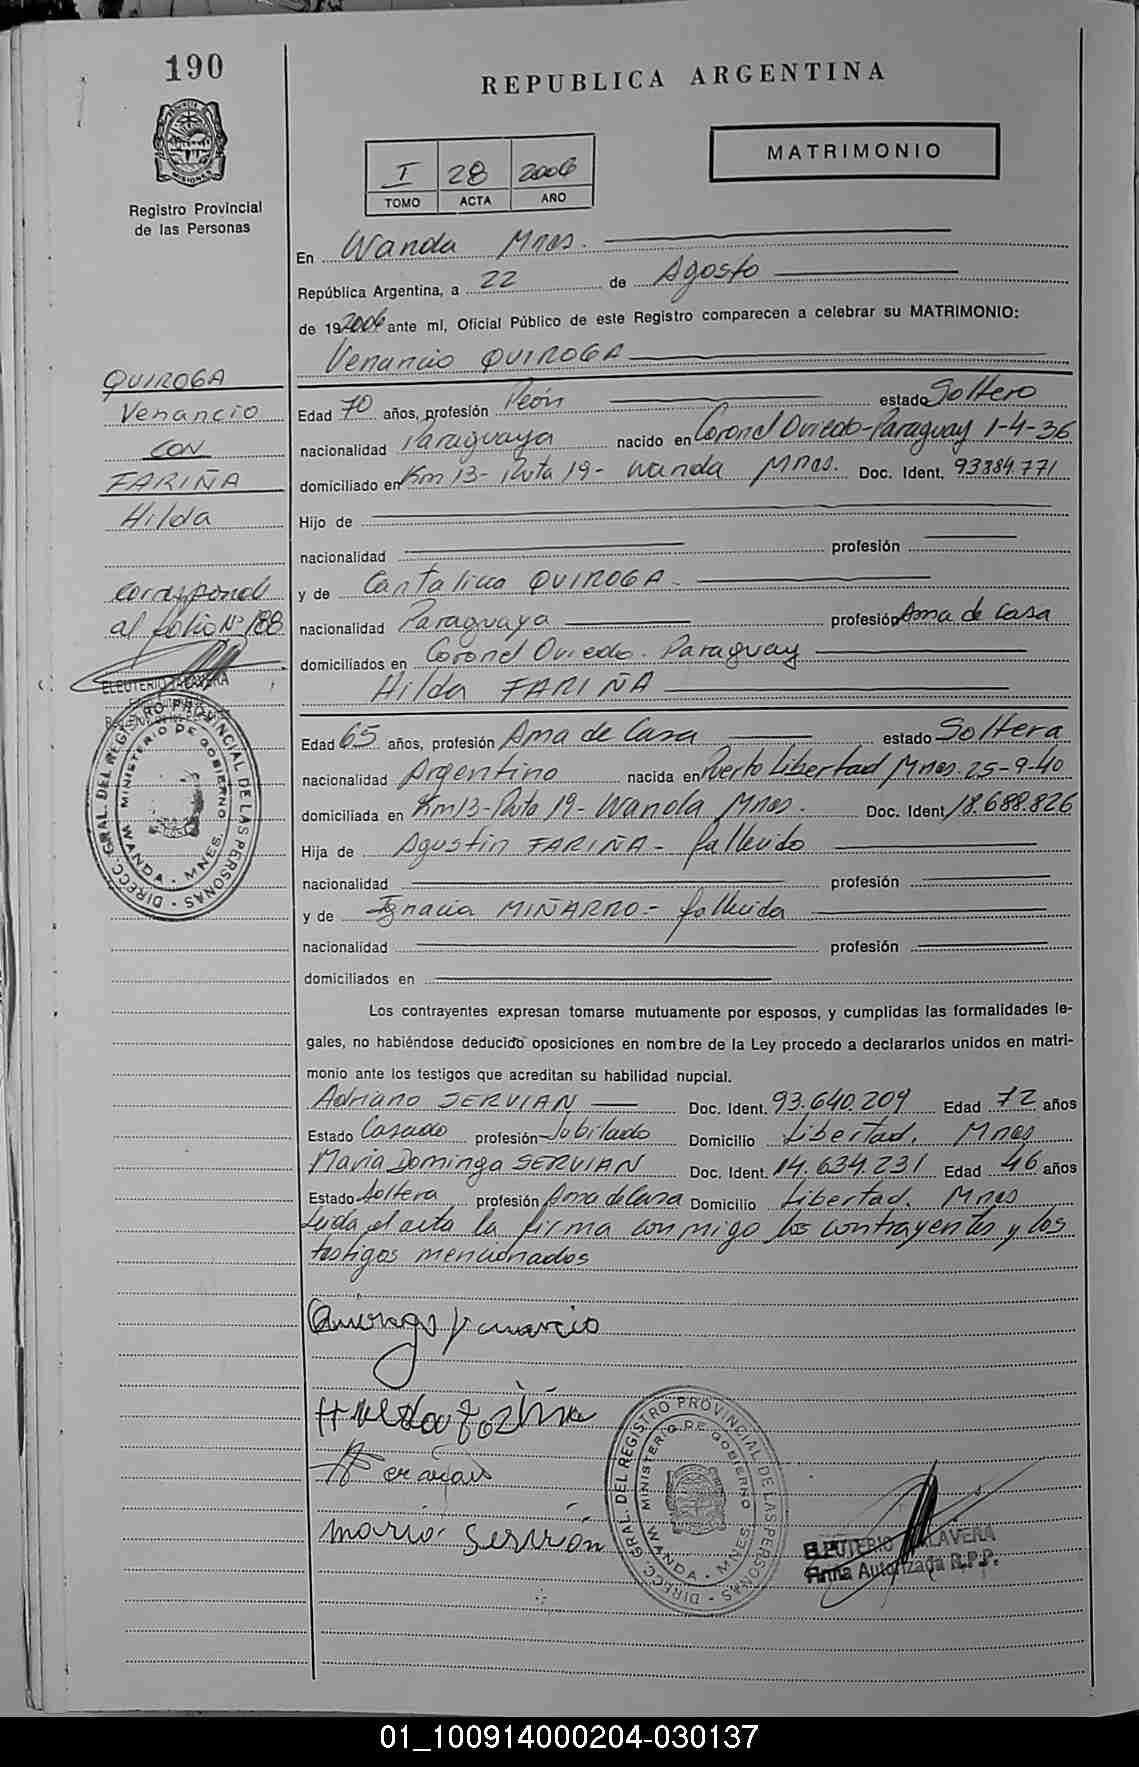 190
Registro Provincial
de las Personas
REPUBLICA ARGENTINA
I 28 2006
TOMO ACTA AÑO
MATRIMONIO
En Wanda Mnes.
República Argentina, a 22 de Agosto
de 19 2006 ante mí, Oficial Público de este Registro comparecen a celebrar su MATRIMONIO:
Venancio QUIROGA
QUIROGA
Venancio
CON
FARIÑA
Hilda
corresponde
al folio Nº 188
ELEUTERIO TALAVERA
DIRECC. GRAL. DEL REGISTRO PROVINCIAL DE LAS PERSONAS
MINISTERIO DE GOBIERNO
WANDA - MNES.
Edad 70 años, profesión Peón estado Soltero
nacionalidad Paraguaya nacido en Coronel Oviedo-Paraguay 1-4-36
domiciliado en Km 13- Ruta 19- Wanda Mnes. Doc. Ident. 93884.771
Hijo de
nacionalidad profesión
y de Cantalicia QUIROGA-
nacionalidad Paraguaya profesión Ama de Casa
domiciliados en Coronel Oviedo. Paraguay
Hilda FARIÑA
Edad 65 años, profesión Ama de Casa estado Soltera
nacionalidad Argentina nacida en Puerto Libertad Mnes. 25-9-40
domiciliada en Km 13-Ruta 19- Wanda Mnes. Doc. Ident 18.688.826
Hija de Agustin FARIÑA- fallecido
nacionalidad profesión
y de Ignacia MIÑARRO- fallecida
nacionalidad profesión
domiciliados en
Los contrayentes expresan tomarse mutuamente por esposos, y cumplidas las formalidades le-
gales, no habiéndose deducido oposiciones en nombre de la Ley procedo a declararlos unidos en matri-
monio ante los testigos que acreditan su habilidad nupcial.
Adriano SERVIAN Doc. Ident. 93.640.209 Edad 72 años
Estado Casado profesión Jubilado Domicilio Libertad. Mnes
Maria Dominga SERVIAN Doc. Ident. 14.634.231 Edad 46 años
Estado Soltera profesión Ama de Casa Domicilio Libertad. Mnes
Leida el acta la firma conmigo los contrayentes y los
testigos mencionados
Quiroga Venancio
Hilda Fariña
Servian
Maria Servian
DIRECC. GRAL. DEL REGISTRO PROVINCIAL DE LAS PERSONAS
MINISTERIO DE GOBIERNO
WANDA - MNES.
ELEUTERIO TALAVERA
Firma Autorizada R.P.P.
01_100914000204-030137